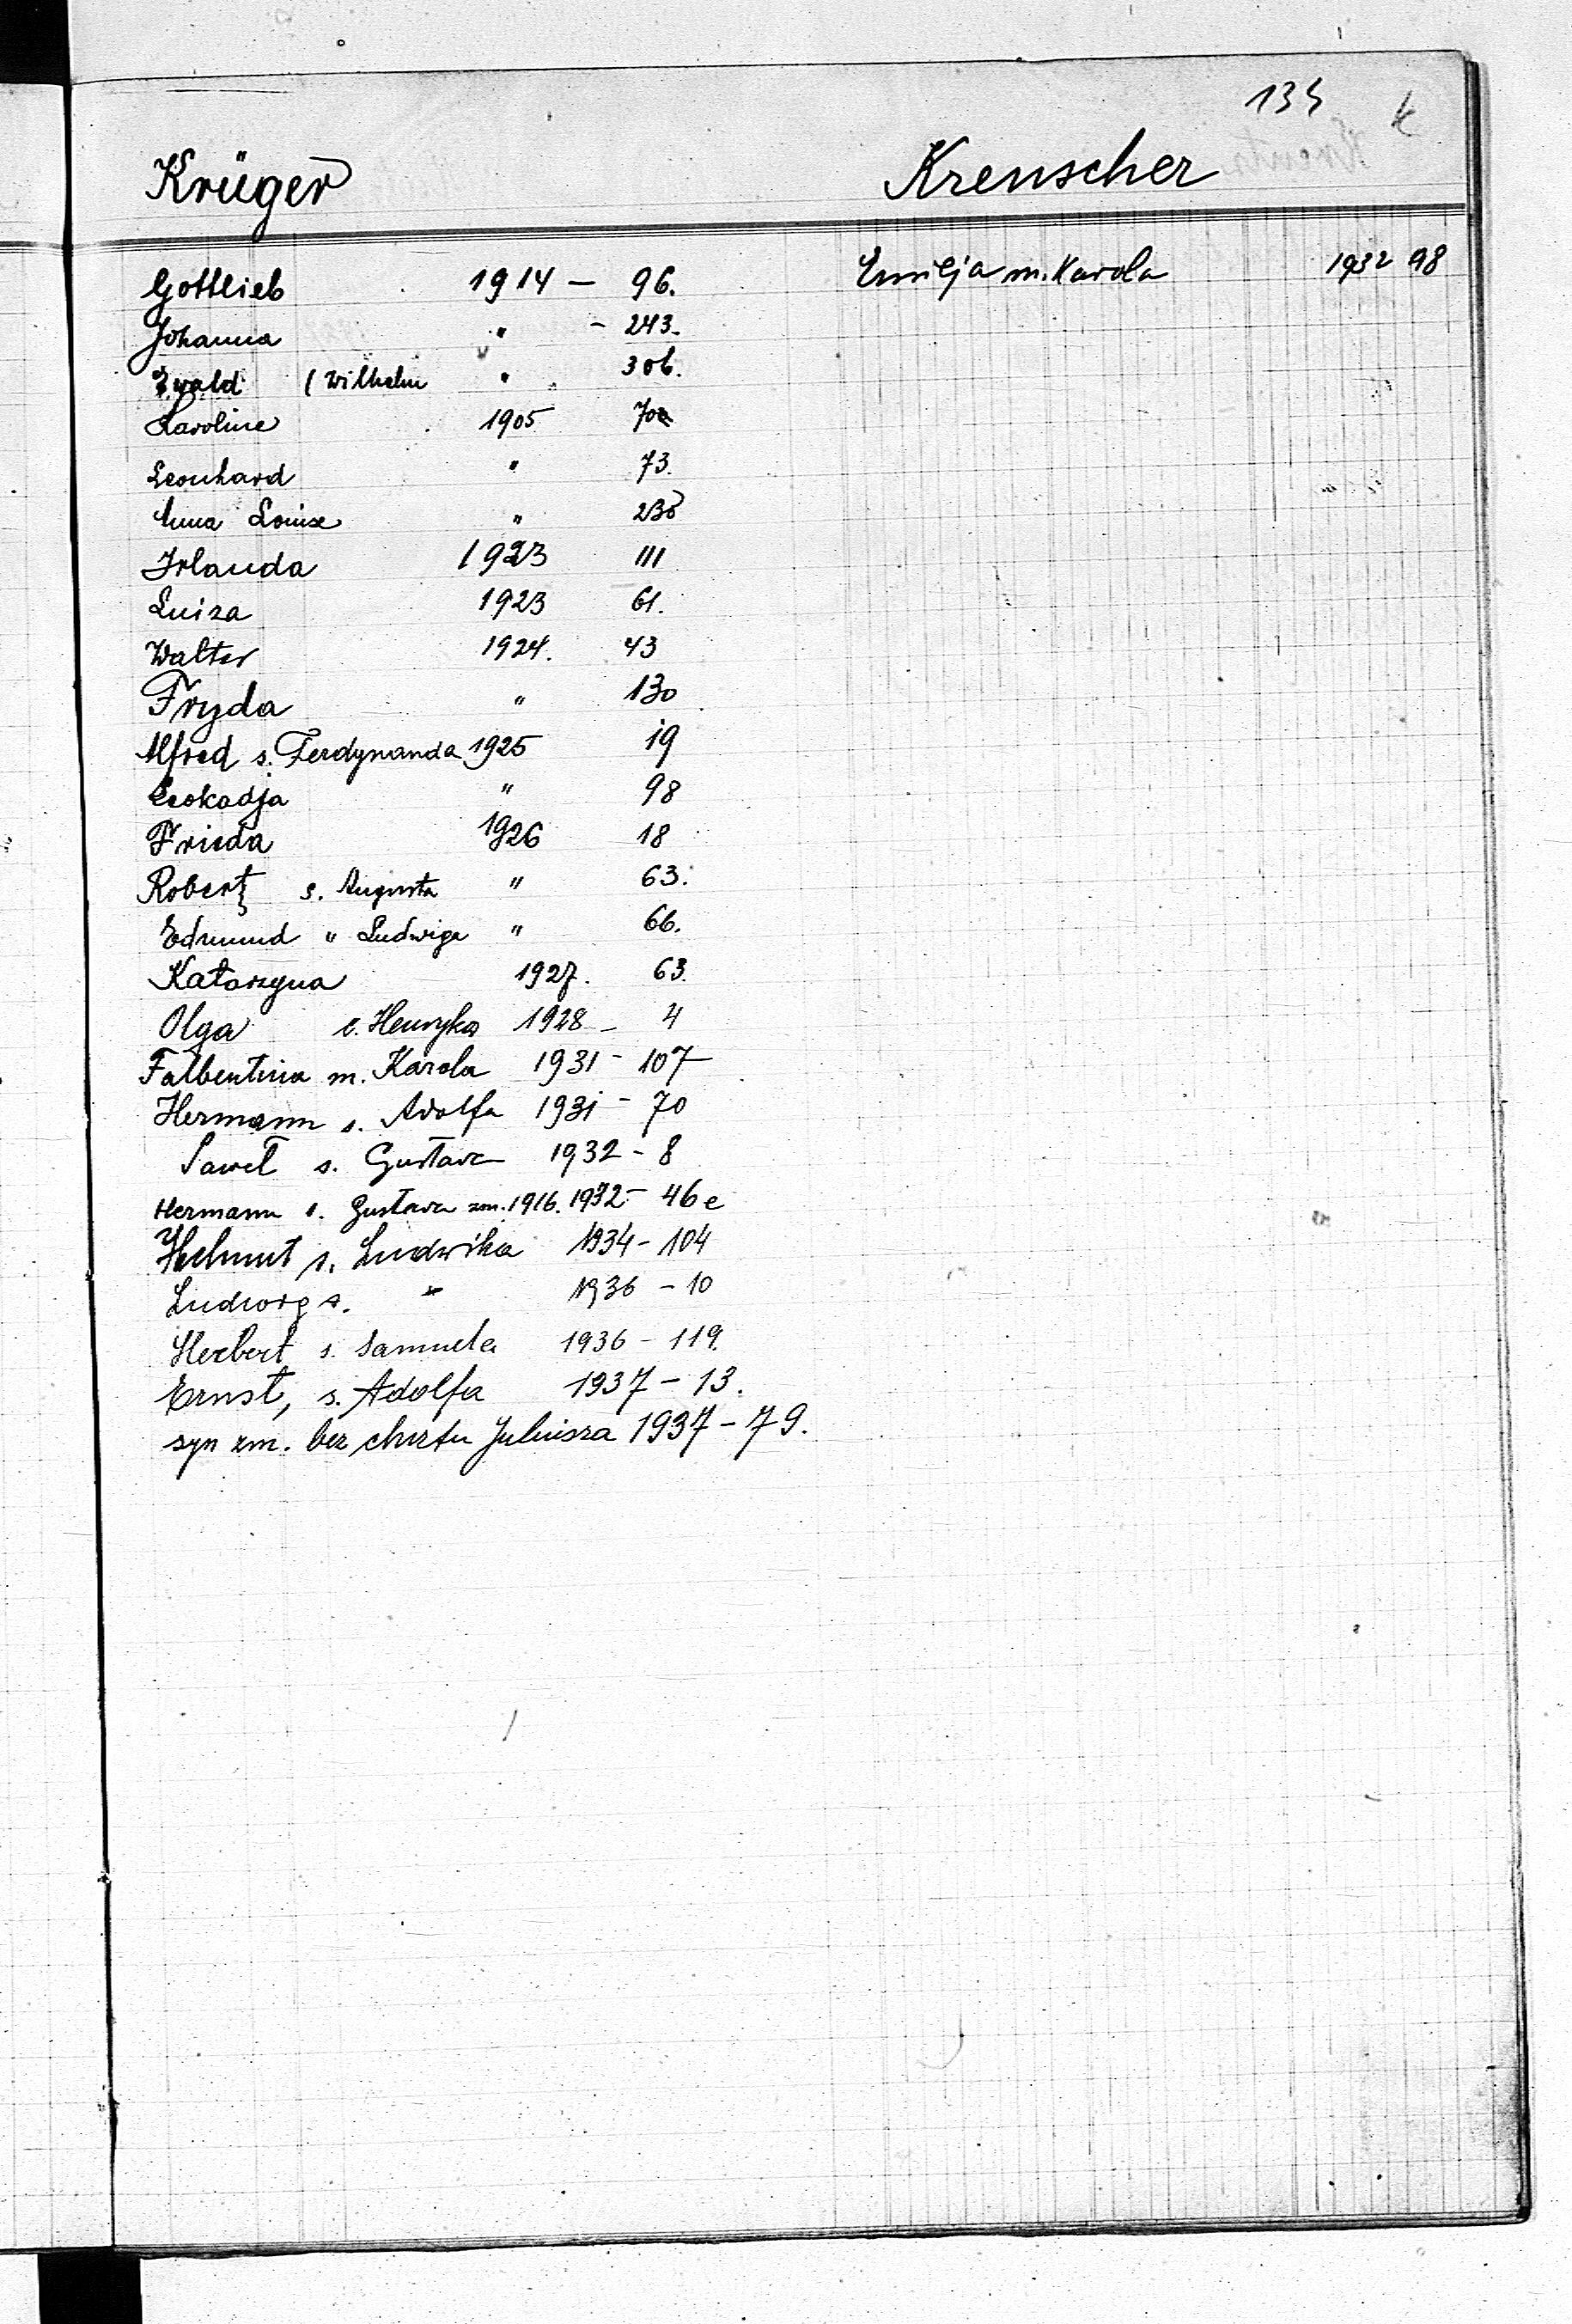 135 k
Krüger
Gottlieb 1914 – 96.
Johanna " – 243.
Ewald (Wilhelm " 306.
Karoline 1905 70a
Leonhard " 73.
Anna Louise " 230
Irlanda 1923 111
Luiza 1923 61.
Walter 1924. 43
Fryda " 130
Alfred s. Ferdynanda 1925 19
Leokadja " 98
Frieda 1926 18
Robert s. Augusta " 63.
Edmund " Ludwiga " 66.
Katarzyna 1927. 63.
Olga c. Henryka 1928 – 4
Falbentina m. Karola 1931 – 107
Hermann s. Adolfa 1931 – 70
Paweł s. Gustawa 1932 – 8
Hermann s. Gustawa zm. 1916. 1932 – 46e
Helmut s. Ludwika 1934 – 104
Ludwig s. " 1936 – 10
Herbert s. Samuela 1936 – 119.
Ernst, s. Adolfa 1937 – 13.
syn zm. bez chrztu Juljusza 1937 – 79.
Kreuscher
Emilja m. Karola 1932 98